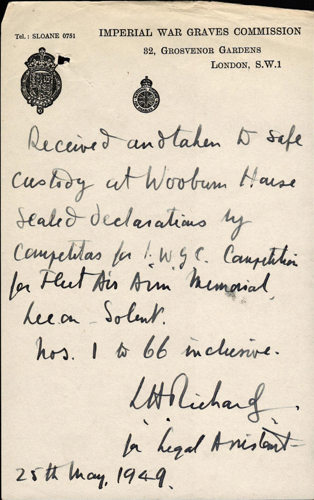 Tel.: SLOANE 0751
IMPERIAL WAR GRAVES COMMISSION
32, GROSVENOR GARDENS
LONDON, S.W.1
Received and taken to safe
custody at Wooburn House
sealed declarations by
Competitors for I.W.G.C. Competition
for Fleet Air Arm Memorial,
Lee on - Solent.
Nos. 1 to 66 inclusive.
LH Richards.
for Legal Assistant
25th May, 1949.